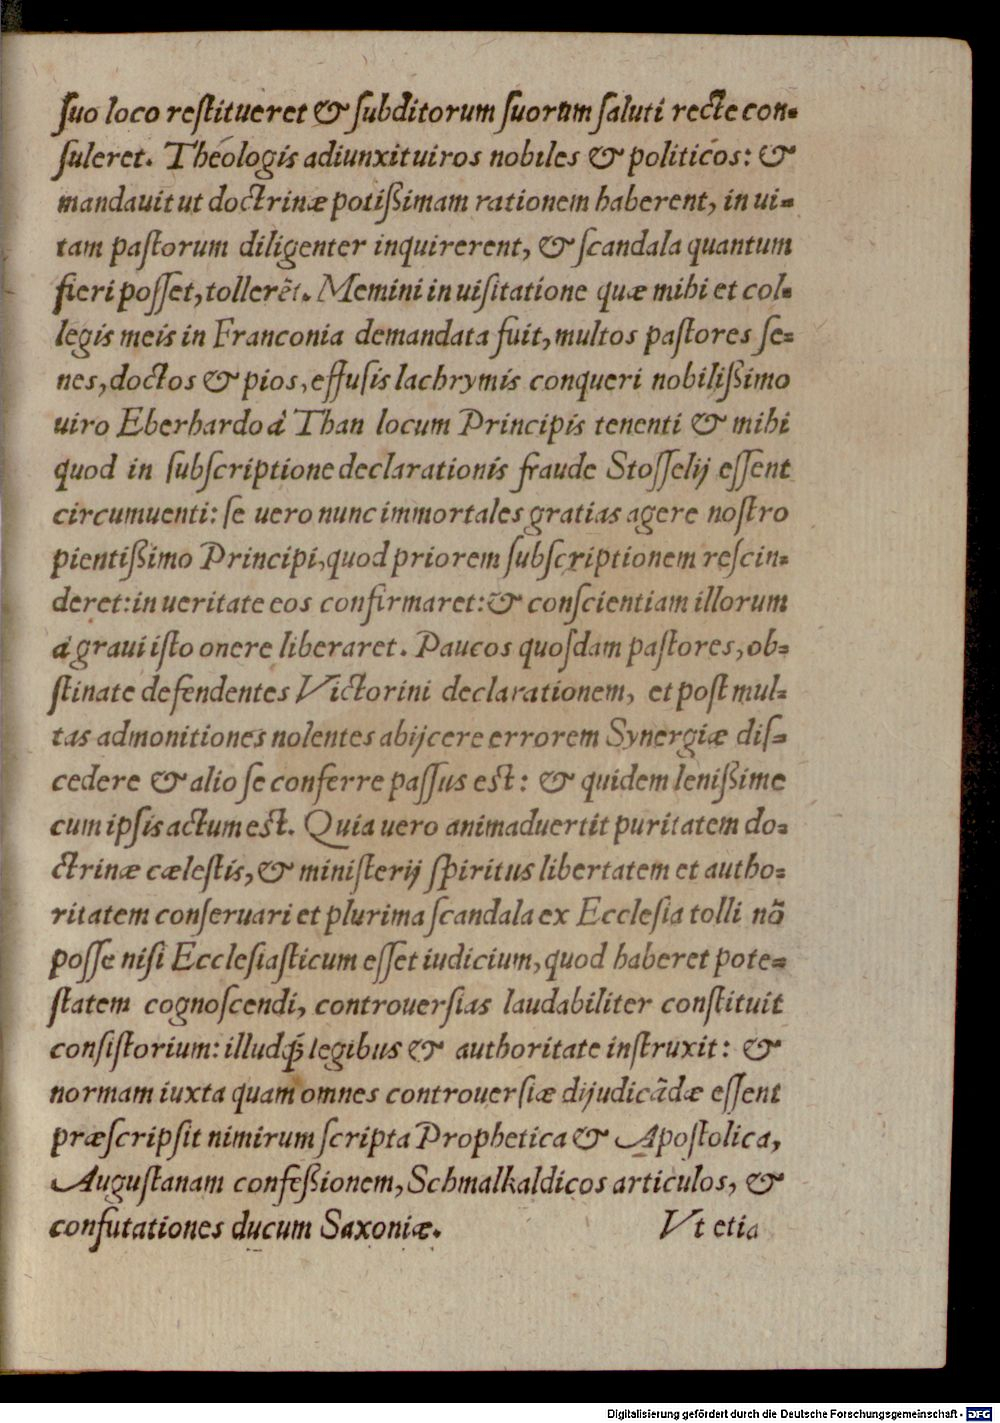 ſuo loco reſtitueret & ſubditorum ſuorum ſaluti recte con-
ſuleret. Theologis adiunxit uiros nobiles & politicos: &
mandauit ut doctrinæ potißimam rationem haberent, in ui-
tam paſtorum diligenter inquirerent, & ſcandala quantum
fieri poſſet, tollerēt. Memini in uiſitatione quæ mihi et col-
legis meis in Franconia demandata fuit, multos paſtores ſe-
nes, doctos & pios, effuſis lachrymis conqueri nobilißimo
uiro Eberhardo à Than locum Principis tenenti & mihi
quod in ſubſcriptione declarationis fraude Stoſſelij eſſent
circumuenti: ſe uero nunc immortales gratias agere noſtro
pientißimo Principi, quod priorem ſubſcriptionem reſcin-
deret: in ueritate eos confirmaret: & conſcientiam illorum
à graui iſto onere liberaret. Paucos quoſdam paſtores, ob-
ſtinate defendentes Victorini declarationem, et poſt mul-
tas admonitiones nolentes abijcere errorem Synergiæ diſ-
cedere & alio ſe conferre paſſus est: & quidem lenißime
cum ipſis actum est. Quia uero animaduertit puritatem do-
ctrinæ cæleſtis, & miniſterij ſpiritus libertatem et autho-
ritatem conſeruari et plurima ſcandala ex Eccleſia tolli nō
poſſe niſi Eccleſiaſticum eſſet iudicium, quod haberet pote-
ſtatem cognoſcendi, controuerſias laudabiliter conſtituit
conſiſtorium: illudq́; legibus & authoritate inſtruxit: &
normam iuxta quam omnes controuerſiæ dijudicādæ eſſent
præſcripſit nimirum ſcripta Prophetica & Apoſtolica,
Auguſtanam confeßionem, Schmalkaldicos articulos, &
confutationes ducum Saxoniæ. Vt etia
Digitalisierung gefördert durch die Deutsche Forschungsgemeinschaft - DFG